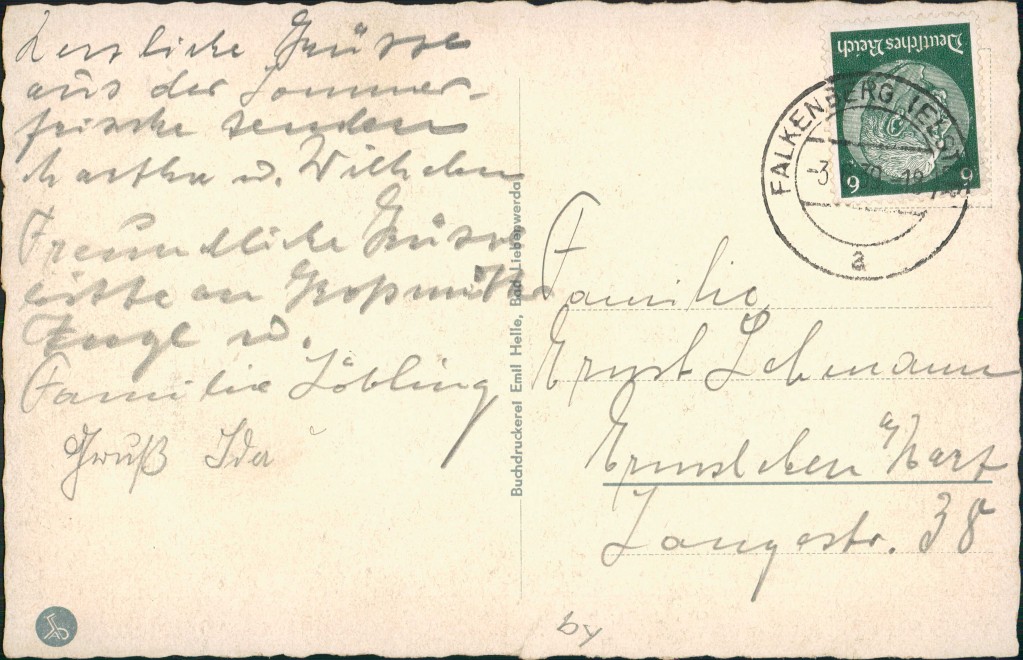 Herzliche Grüsse
aus der Sommer-
frische senden
Martha u. Wilhelm
Freundliche Grüsse
bitte an Großmutter
u.
Familie Löbling
Gruß Ida
Buchdruckerei Emil Helle, Bad Liebenwerda
Deutsches Reich
6 6
FALKENBERG (ELST
a
Familie
Ernst Lehmann
Ermsleben a/Harz
Langestr. 38
by